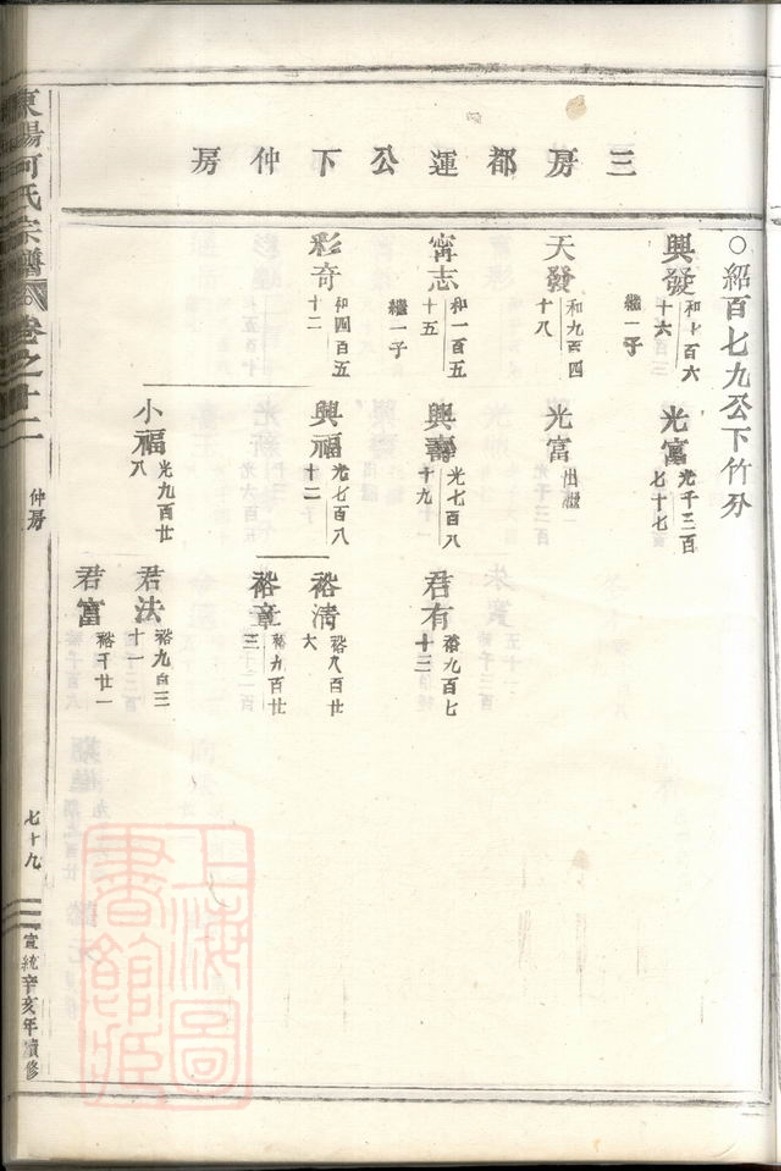 三房都運公下仲房
○紹百七九公下竹分
興發 和七百六十六 繼一子
光富 光千三百七十七
天發 和九百四十八
光富 出繼
甯志 和一百五十五 繼一子
興壽 光七百八十九
君有 裕九百七十三
彩奇 和四百五十二
興福 光七百八十二
裕清 裕八百廿六
裕章 裕九百廿三
小福 光九百廿八
君法 裕九百三十一
君富 裕千廿一
東陽何氏宗譜
卷之十二
仲房
七十九
宣統辛亥年續修
上海圖書館藏